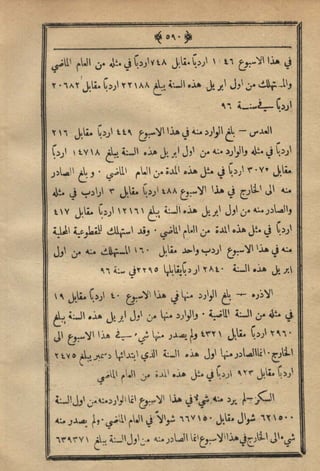 ﴿٥٩٠﴾
في هذا الاسبوع ١٠٤٦ اردبًا مقابل ٧٤٨ اردبًا في مثله من العام الماضي
والمستهلك من اول ابريل هذه السنة يبلغ ٢٢١٨٨ اردبًا مقابل ٢٠٦٨٢
اردبًا في سنة ٩٦
العدس – بلغ الوارد منه في هذا الاسبوع ٤٤٩ اردبًا مقابل ٢١٦
اردبًا في مثله والوارد منه من اول ابريل هذه السنة يبلغ ١٤٧١٨ اردبًا
مقابل ٣٠٧٠ اردبًا في مثل هذه المدة من العام الماضي ٠ وبلغ الصادر
منه الى الخارج في هذا الاسبوع ٤٨٨ اردبًا مقابل ٣ ارادب في مثله
والصادر منه من اول ابريل هذه السنة يبلغ ١٢١٦١ اردبًا مقابل ٤١٧
اردبًا في مثل هذه المدة من العام الماضي ٠ وقد استهلك للقطوعية المحلية
منه في هذا الاسبوع اردب واحد مقابل ١٦٠ المستهلك منه من اول
ابريل هذه السنة ٢٨٤٠ اردبًا يقابلها ٢٢٩٥ في سنة ٩٦
الاذره – بلغ الوارد منها في هذا الاسبوع ٤٠ اردبًا مقابل ١٩
في مثله من السنة الماضية ٠ والوارد منها من اول ابريل هذه السنة يبلغ
٢٩٦٠ اردبًا مقابل ٤٣٢١ ولم يصدر منها شيء في هذا الاسبوع الى
الخارج ٠ انما الصادر منها اول هذه السنة الذي ابتدائها دسمبر يبلغ ٢٤٧٥
اردبًا مقابل ٩٢٣ اردبًا في مثل هذه المدة من العام الماضي
السكر – لم يرد منه شيء في هذا الاسبوع انما الوارد منه من اول السنة
٦٢١٥٠٠ شوال مقابل ٦٦٧١٥٠ شوالًا في العام الماضي ٠ ولم يصدر منه
شيء الى الخارج في هذا الاسبوع انما الصادر منه من اول السنة يبلغ ٦٣٩٣٧١